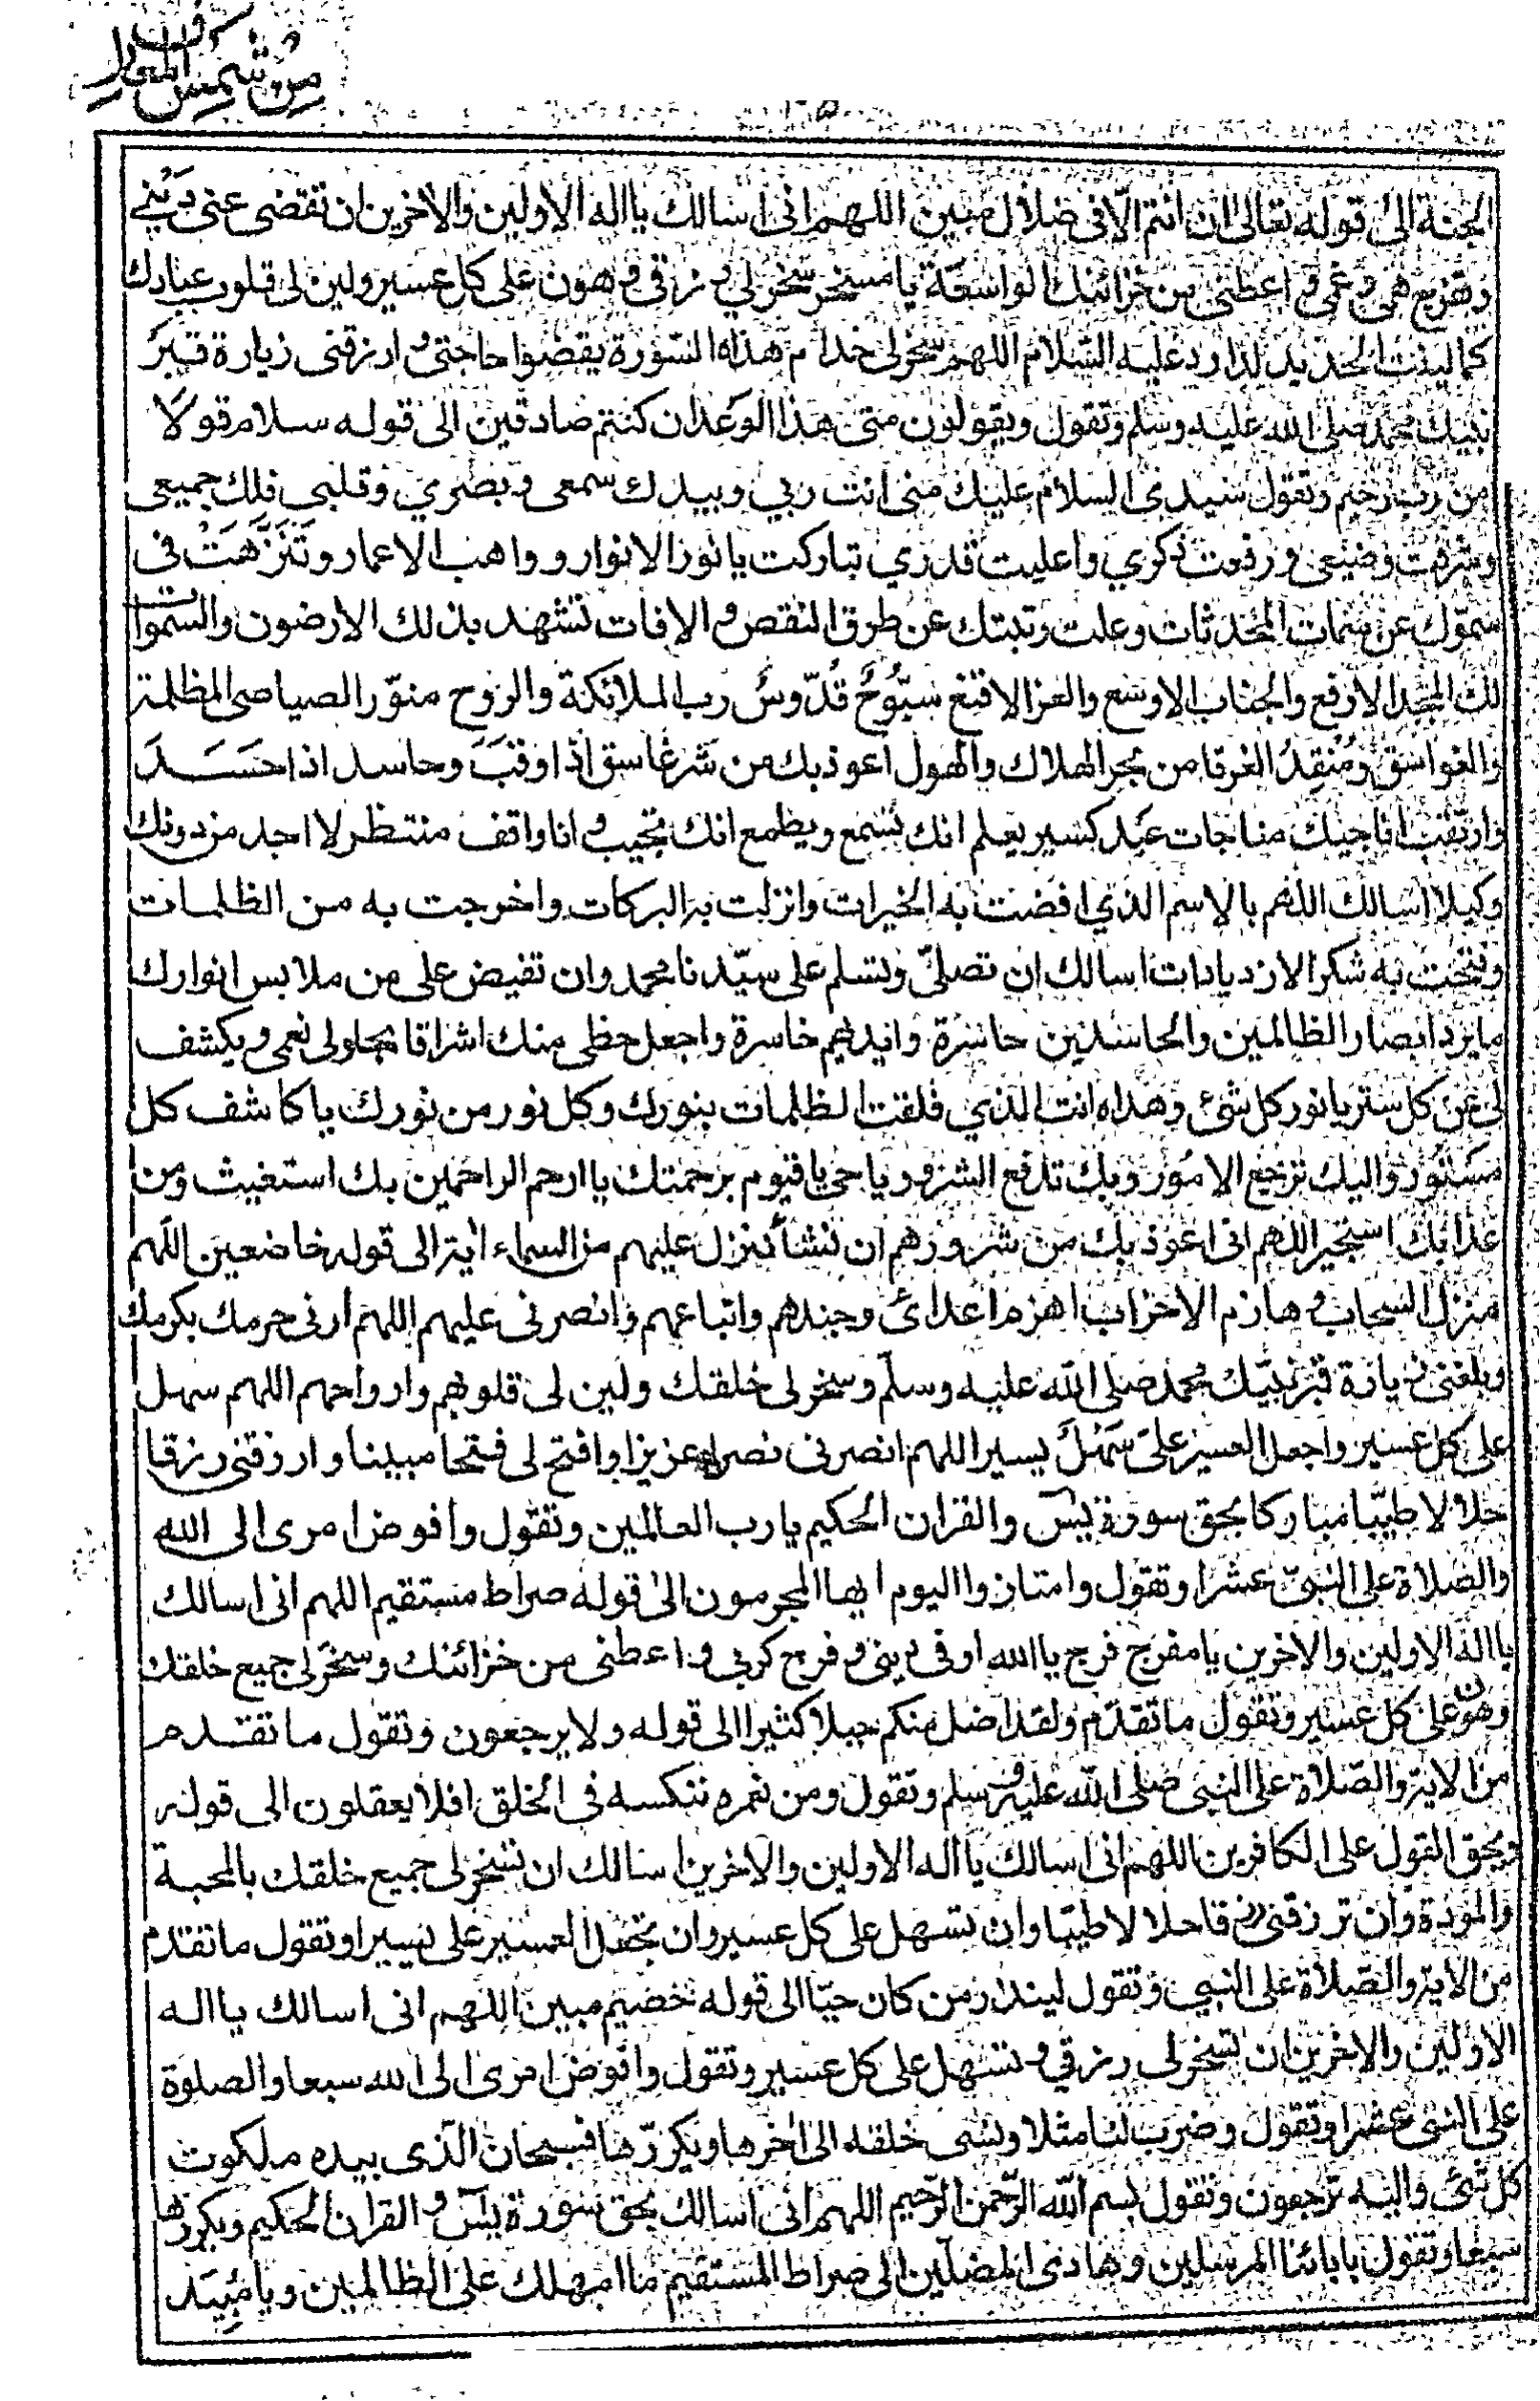 من شمس المعارف
الجنة الى قوله تعالى ان انتم الّا فى ضلال مبين اللهم انى اسالك يا اله الاولين والاخرين ان تقضى عنى دَيْنى
وتفرج همى وغمى واعطنى من خزائنك الواسعة يا مسخر سخر لي رزقى وهون على كل عسير ولين لى قلوب عبادك
كما لينت الحديد لداود عليه السّلام اللهم سخر لى خدام هذه السّورة يقضوا حاجتى وارزقنى زيارة قبر
نبيك محمد صلى الله عليه وسلم وتقول ويقولون متى هذا الوعد ان كنتم صادقين الى قوله سلام قولا
من رب رحيم وتقول سيدى السلام عليك منى انت ربي وبيدك سمعى وبصري وقلبى فلك جميعى
وشرفت وضيعى ورفعت ذكري واعليت قدري تباركت يا نور الانوار وواهب الاعمار وتَنَزَّهَتْ فى
سموّك عن سمات المحدثات وعلت رتبتك عن طرق النقص والافات تشهد بذلك الارضون والسّموات
لك المجد الارفع والجناب الاوسع والعز الامنع سبّوحٌ قُدّوسٌ رب الملائكة والروح منوّر الصياصى المظلمة
والغواسق ومُنْقِذُ الغرقا من بحر الهلاك والهول اعوذ بك من شر غاسق اذا وقبَ وحاسد اذا حَسَدَ
وارتقب اناجيك مناجات عبد كسير يعلم انك تسمع ويطمع انك تجيب وانا واقف منتظر لا اجد من دونك
وكيلا اسالك اللهم بالاسم الذي افضت به الخيرات وانزلت به البركات واخرجت به من الظلمات
وفتحت به شكر الازديادات اسالك ان تصلىّ وتسلم على سيّدنا محمد وان تفيض على من ملابس انوارك
ما يرد ابصار الظالمين والحاسدين حاسرة وايديهم خاسرة واجعل حظى منك اشراقا يجلولى نعمى ويكشف
لى عن كل ستر يا نور كل شئ وهداه انت الذي فلقت الظلمات بنورك وكل نور من نورك يا كاشف كل
مستور واليك ترجع الامور وبك تدفع الشرور يا حى يا قيوم برحمتك يا ارحم الراحمين بك استغيث ومن
عذابك استجير اللهم انى اعوذ بك من شرورهم ان نشأ ننزل عليهم من السماء اية الى قوله خاضعين اللهم
منزل السحاب وهازم الاحزاب اهزم اعدائ وجندهم واتباعهم وانصرنى عليهم اللهم ارنى حرمك بكرمك
وبلغنى زيارة قبر نبيّك محمد صلى الله عليه وسلّم وسخر لى خلقك ولين لى قلوبهم وارواحهم اللهم سهل
على كل عسير واجعل العسير علىّ سَهْلً يسيرا اللهم انصرنى نصرا عزيزا وافتح لى فتحا مبينا وارزقنى رزقا
حلالا طيّبا مباركا بحق سورة يسٓ والقران الحكيم يا رب العالمين وتقول وافوض امرى الى الله
والصلاة على النبىّ عشرا وتقول وامتازوا اليوم ايها المجرمون الى قوله صراط مستقيم اللهم انى اسالك
يا اله الاولين والاخرين يا مفرج فرج يا الله اوفى دينى وفرج كربى واعطنى من خزائنك وسخر لى جميع خلقك
وهون على كل عسير وتقول ما تقدّم ولقد اضل منكم جبلا كثيرا الى قوله ولا يرجعون وتقول ما تقدم
من الاية والصّلاة على النبى صلى الله عليه وسلم وتقول ومن نعمره ننكسه فى الخلق افلا يعقلون الى قوله
ويحق القول على الكافرين اللهم انى اسالك يا اله الاولين والاخرين اسالك ان تسخر لى جميع خلقك بالمحبة
والمودة وان ترزقنى رزقا حلالا طيبا وان تسهل على كل عسير وان تجعل العسير على يسيرا وتقول ما تقدم
من الاية والصّلاة على النبي وتقول لينذر من كان حيّا الى قوله خصيم مبين اللهم انى اسالك يا اله
الاولين والاخرين ان تسخر لى رزقي وتسهل على كل عسير وتقول وافوض امرى الى الله سبعا والصلوة
على النبى عشرا وتقول وضرب لنا مثلا ونسى خلقه الى اخرها ويكررّها فسبحان الّذى بيده ملكوت
كل شئ واليه ترجعون وتقول بسم الله الرّحمن الرّحيم اللهم انى اسالك بحق سورة يسٓ والقران الحكيم ويكررها
سبعا وتقول يا باعث المرسلين وهادى المضلين الى صراط المستقيم ما امهلك على الظالمين ويا مُبِيَد